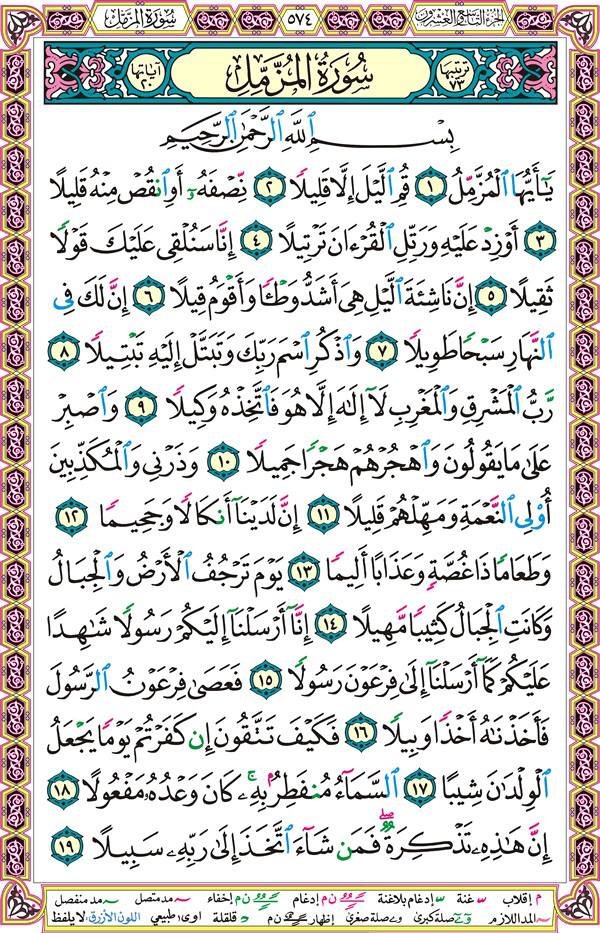 سُورَةُ المُزَّمِّلِ ٥٧٤ الجُزءُ التَّاسِعُ وَالعِشْرُونَ
ترتيبها ٧٣ سُورَةُ المُزَّمِّلِ آياتها ٢٠
بِسْمِ ٱللَّهِ ٱلرَّحْمَٰنِ ٱلرَّحِيمِ
يَٰٓأَيُّهَا ٱلْمُزَّمِّلُ ١ قُمِ ٱلَّيْلَ إِلَّا قَلِيلًا ٢ نِّصْفَهُۥٓ أَوِ ٱنقُصْ مِنْهُ قَلِيلًا
٣ أَوْ زِدْ عَلَيْهِ وَرَتِّلِ ٱلْقُرْءَانَ تَرْتِيلًا ٤ إِنَّا سَنُلْقِى عَلَيْكَ قَوْلًا
ثَقِيلًا ٥ إِنَّ نَاشِئَةَ ٱلَّيْلِ هِىَ أَشَدُّ وَطْـًٔا وَأَقْوَمُ قِيلًا ٦ إِنَّ لَكَ فِى
ٱلنَّهَارِ سَبْحًا طَوِيلًا ٧ وَٱذْكُرِ ٱسْمَ رَبِّكَ وَتَبَتَّلْ إِلَيْهِ تَبْتِيلًا ٨
رَّبُّ ٱلْمَشْرِقِ وَٱلْمَغْرِبِ لَآ إِلَٰهَ إِلَّا هُوَ فَٱتَّخِذْهُ وَكِيلًا ٩ وَٱصْبِرْ
عَلَىٰ مَا يَقُولُونَ وَٱهْجُرْهُمْ هَجْرًا جَمِيلًا ١٠ وَذَرْنِى وَٱلْمُكَذِّبِينَ
أُو۟لِى ٱلنَّعْمَةِ وَمَهِّلْهُمْ قَلِيلًا ١١ إِنَّ لَدَيْنَآ أَنكَالًا وَجَحِيمًا ١٢
وَطَعَامًا ذَا غُصَّةٍ وَعَذَابًا أَلِيمًا ١٣ يَوْمَ تَرْجُفُ ٱلْأَرْضُ وَٱلْجِبَالُ
وَكَانَتِ ٱلْجِبَالُ كَثِيبًا مَّهِيلًا ١٤ إِنَّآ أَرْسَلْنَآ إِلَيْكُمْ رَسُولًا شَٰهِدًا
عَلَيْكُمْ كَمَآ أَرْسَلْنَآ إِلَىٰ فِرْعَوْنَ رَسُولًا ١٥ فَعَصَىٰ فِرْعَوْنُ ٱلرَّسُولَ
فَأَخَذْنَٰهُ أَخْذًا وَبِيلًا ١٦ فَكَيْفَ تَتَّقُونَ إِن كَفَرْتُمْ يَوْمًا يَجْعَلُ
ٱلْوِلْدَٰنَ شِيبًا ١٧ ٱلسَّمَآءُ مُنفَطِرٌۢ بِهِۦ ۚ كَانَ وَعْدُهُۥ مَفْعُولًا ١٨
إِنَّ هَٰذِهِۦ تَذْكِرَةٌ ۖ فَمَن شَآءَ ٱتَّخَذَ إِلَىٰ رَبِّهِۦ سَبِيلًا ١٩
م إقلاب غنة إدغام بلاغنة ن م إدغام ن م إخفاء مد متصل مد منفصل
المد اللازم صلة كبرى صلة صغرى إظهار ن م قلقلة اوى طبيعي اللون الأزرق: لا يلفظ